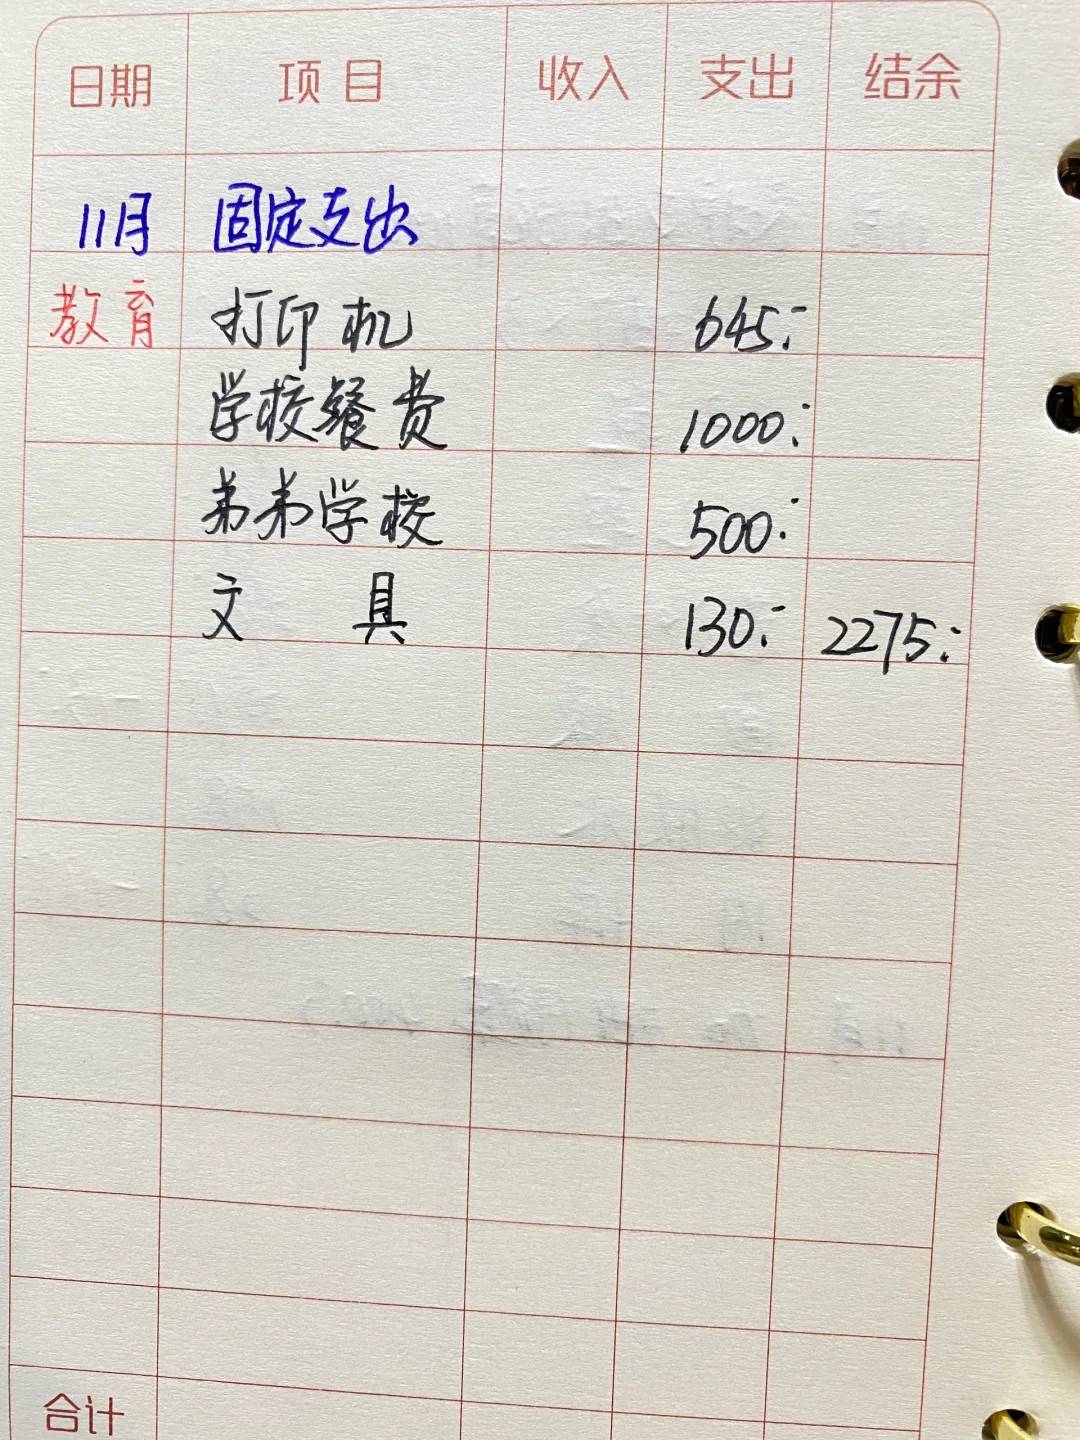 日期 项目 收入 支出 结余
11月 固定支出
教育 打印机 645:-
学校餐费 1000:-
弟弟学校 500:-
文具 130:- 2275:-
合计